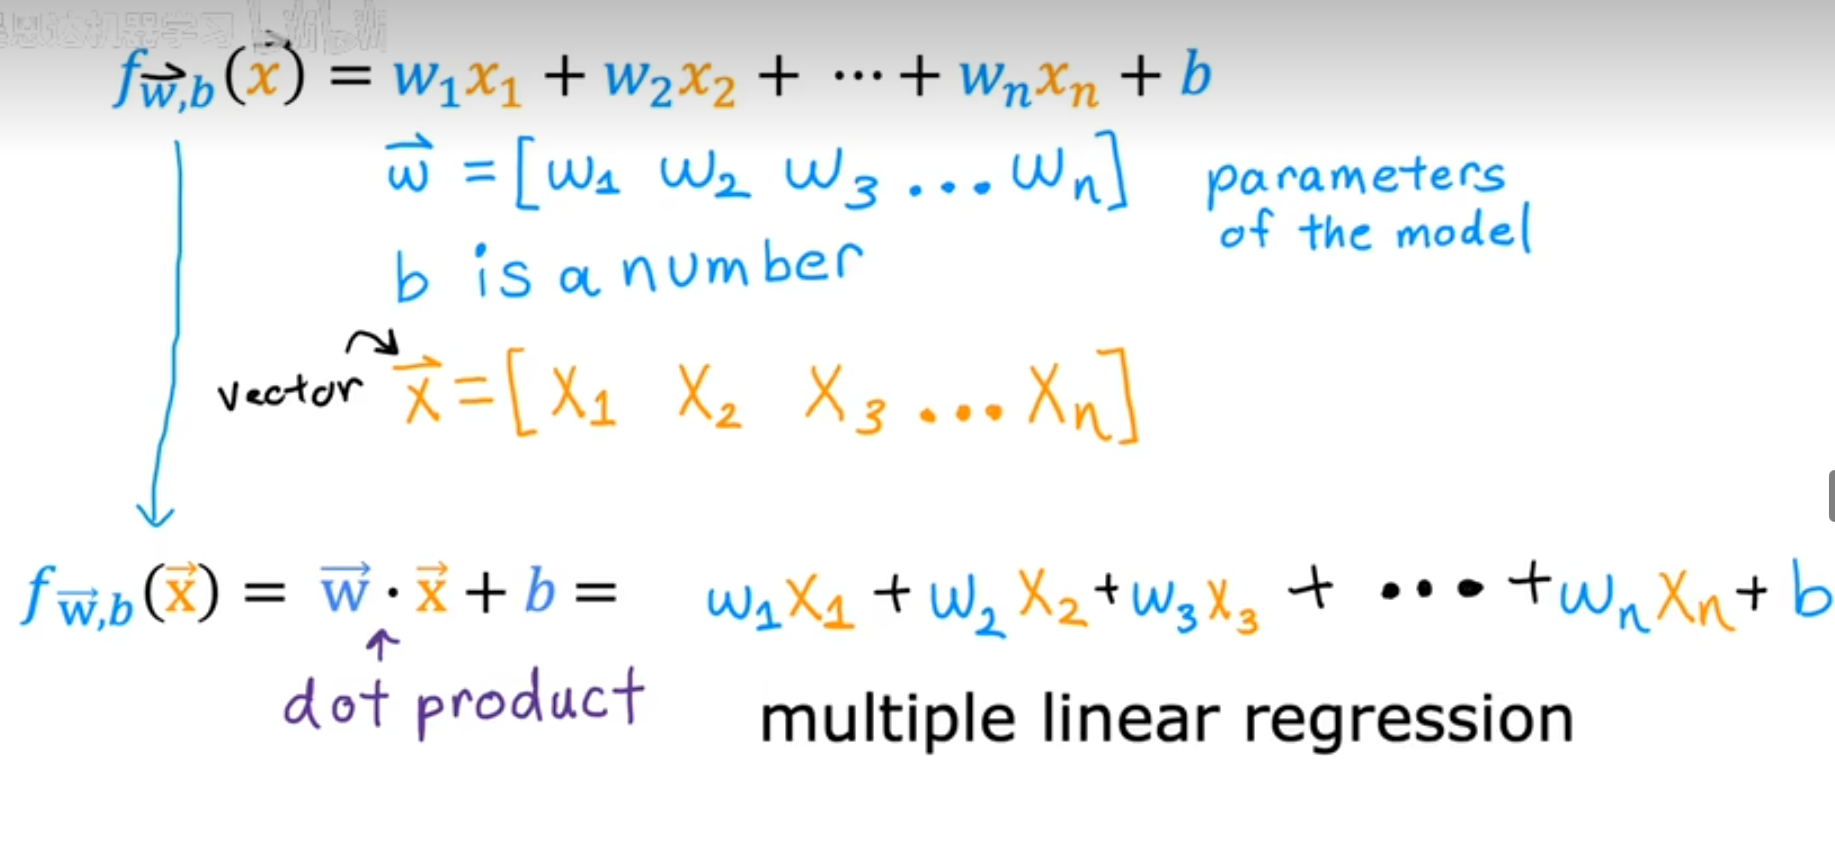 吴恩达机器学习
f_{\vec{w},b}(\vec{x}) = w₁x₁ + w₂x₂ + ⋯ + wₙxₙ + b
\vec{w} = [w₁ w₂ w₃ ... wₙ] parameters of the model
b is a number
vector \vec{x} = [x₁ x₂ x₃ ... xₙ]
f_{\vec{w},b}(\vec{x}) = \vec{w} · \vec{x} + b = w₁x₁ + w₂x₂ + w₃x₃ + ⋯ + wₙxₙ + b
dot product
multiple linear regression